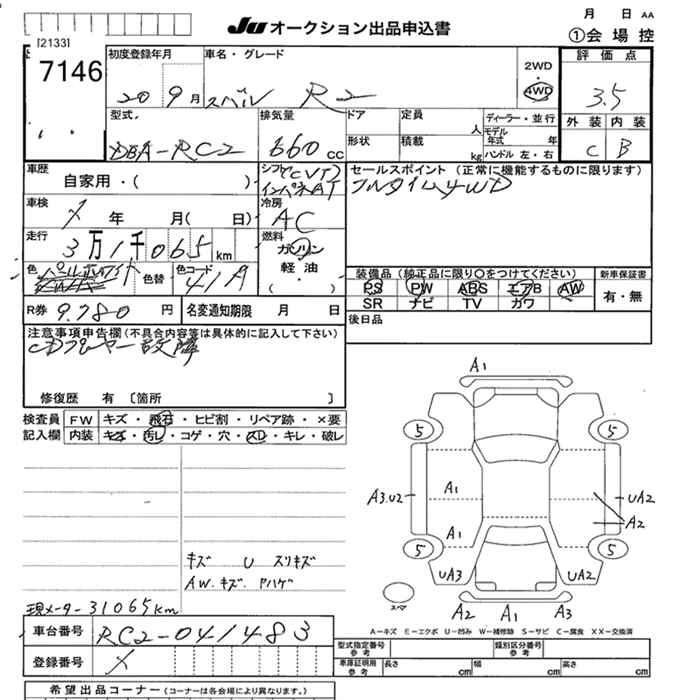 JU オークション出品申込書
月 日 AA
①会場控
[2133]
7146
初度登録年月
20 9月
車名・グレード
スバル R2
2WD
・
4WD
評価点
3.5
型式
DBA-RC2
排気量
660 cc
ドア
定員
人
ディーラー・並行
モデル年式 年
形状
積載
kg
ハンドル 左・右
外装
内装
C
B
車歴
自家用・( )
シフト(CVT)
インパネAT
セールスポイント (正常に機能するものに限ります)
フルタイム4WD
車検
年 月( 日)
冷房
AC
走行
3万1千065km
燃料
ガソリン
軽油
・( )
色
パールホワイト
色替
色コード
41A
装備品 (純正品に限り○をつけてください)
PS PW ABS エアB AW
SR ナビ TV ガワ
新車保証書
有・無
R券
9.780円
名変通知期限 月 日
後日品
注意事項申告欄 (不具合内容等は具体的に記入して下さい)
CDプレーヤー故障
修復歴 有 〔箇所 〕
検査員
記入欄
FW キズ・飛石・ヒビ割・リペア跡・×要
内装 キズ・汚レ・コゲ・穴・スレ・キレ・破レ
キズ U スリキズ
AW.キズ.ハゲ
現メーター31065km
A1
5
5
A3.U2
A1
A1
UA2
A2
5
5
UA3
UA2
スペア
A2 A1 A3
A-キズ E-エクボ U-凹み W-補修跡 S-サビ C-腐食 XX-交換済
車台番号
RC2-041483
登録番号
型式指定番号
参考
類別区分番号
参考
車庫証明用
参考
長さ cm
幅 cm
高さ cm
希望出品コーナー (コーナーは各会場により異なります。)